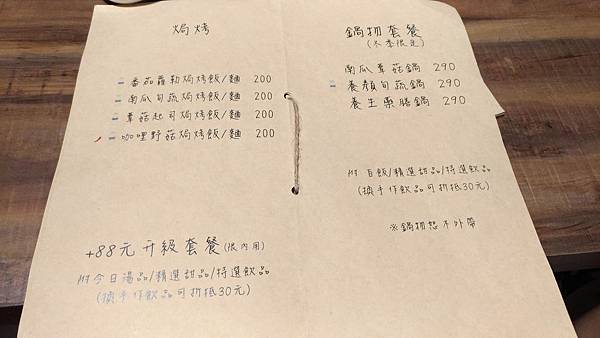 焗烤
番茄羅勒焗烤飯/麵 200
南瓜旬蔬焗烤飯/麵 200
蕈菇起司焗烤飯/麵 200
咖哩野菇焗烤飯/麵 200
+88元升級套餐(限內用)
附今日湯品/精選甜品/特選飲品
(換手作飲品可折抵30元)
鍋物套餐
(冬季限定)
南瓜蕈菇鍋 290
養顏旬蔬鍋 290
養生藥膳鍋 290
附白飯/精選甜品/特選飲品
(換手作飲品可折抵30元)
※鍋物恕不外帶